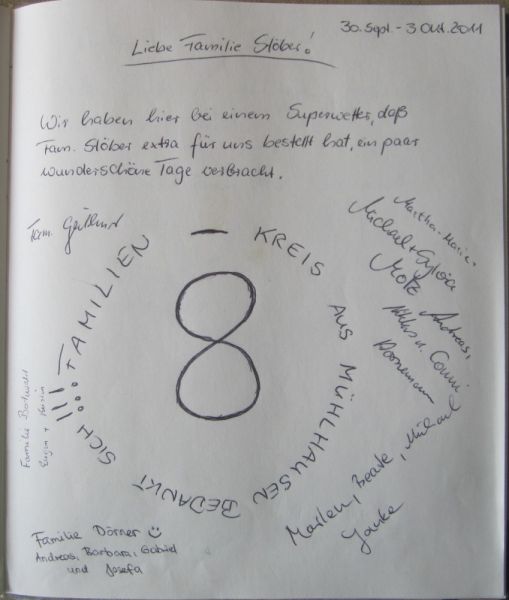 30. Sept. - 3 Okt. 2011
Liebe Familie Stöber!
Wir haben hier bei einem Superwetter, daß
Fam. Stöber extra für uns bestellt hat, ein paar
wunderschöne Tage verbracht.
Fam.
Martha-Marie,
Michael + Sylvia
Motz
Andreas,
Niklas u. Conni
Bornemann
8
FAMILIEN - KREIS AUS MÜHLHAUSEN BEDANKT SICH!!!
Familie
Marlen, Beate, Michael
Janke
Familie Dörner
Andreas, Barbara, Gabriel
und Josefa